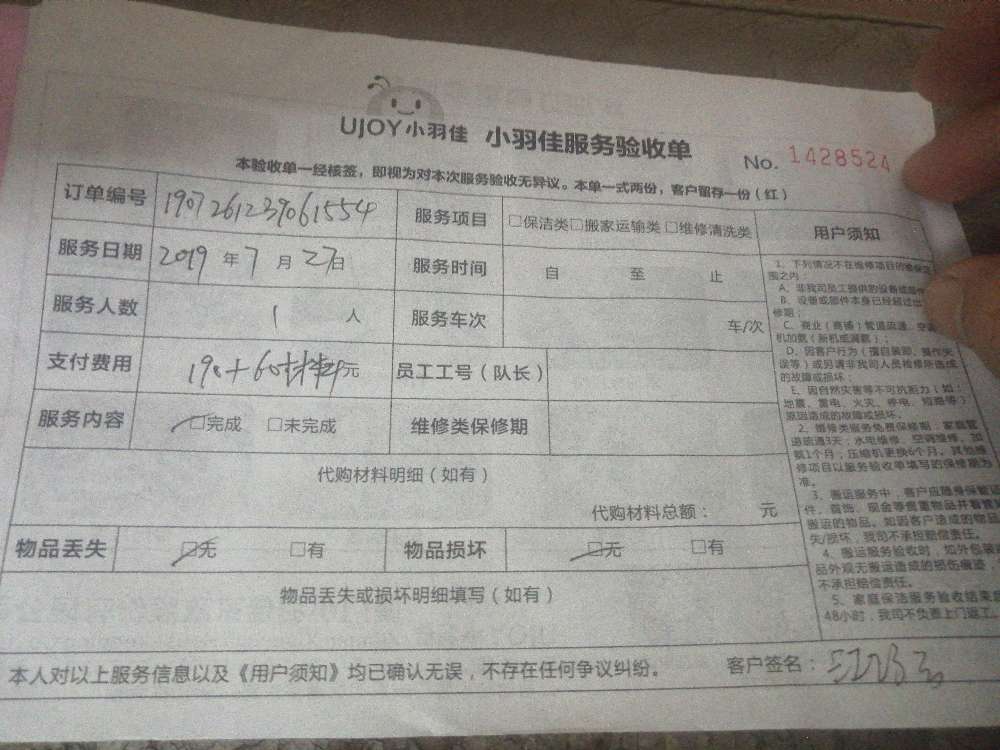 UJOY小羽佳 小羽佳服务验收单 No. 1428524
本验收单一经核签，即视为对本次服务验收无异议。本单一式两份，客户留存一份（红）
订单编号 1907261239061554 服务项目 □保洁类□搬家运输类 □维修清洗类
服务日期 2019 年 7 月 27 日 服务时间 自 至 止
服务人数 1 人 服务车次 车/次
支付费用 198+60材料 元 员工工号（队长）
服务内容 □完成 □未完成 维修类保修期
代购材料明细（如有）
代购材料总额： 元
物品丢失 □无 □有 物品损坏 □无 □有
物品丢失或损坏明细填写（如有）
用户须知
1、下列情况不在维修项目的维保范
围之内：
A、非我司员工提供的设备或部件
B、设备或部件本身已经超过
修期；
C、商业（商铺）管道疏通、空
机加氨（新机或漏氨）；
D、因客户行为（擅自装卸、操作失
误等）或另请非我司人员检修所造成
的故障或损坏；
E、因自然灾害等不可抗能力（如：
地震、雷电、火灾、停电、短路等）
原因造成的故障或损坏。
2、维修类服务免费保修期：家庭管
道疏通3天；水电维修、空调维修、加
氨1个月；压缩机更换6个月。其他维
修项目以服务验收单填写的保修期为
准。
3、搬运服务中，客户应随身保管证
件、首饰、现金等贵重物品并看管
搬运的物品。如因客户造成的物品
失/损坏，我司不承担赔偿责任。
4、搬运服务验收时，如外包装
品外观无搬运造成的损伤痕迹，
不承担赔偿责任。
5、家庭保洁服务验收结束
48小时，我司不负责上门返工。
本人对以上服务信息以及《用户须知》均已确认无误，不存在任何争议纠纷。 客户签名：